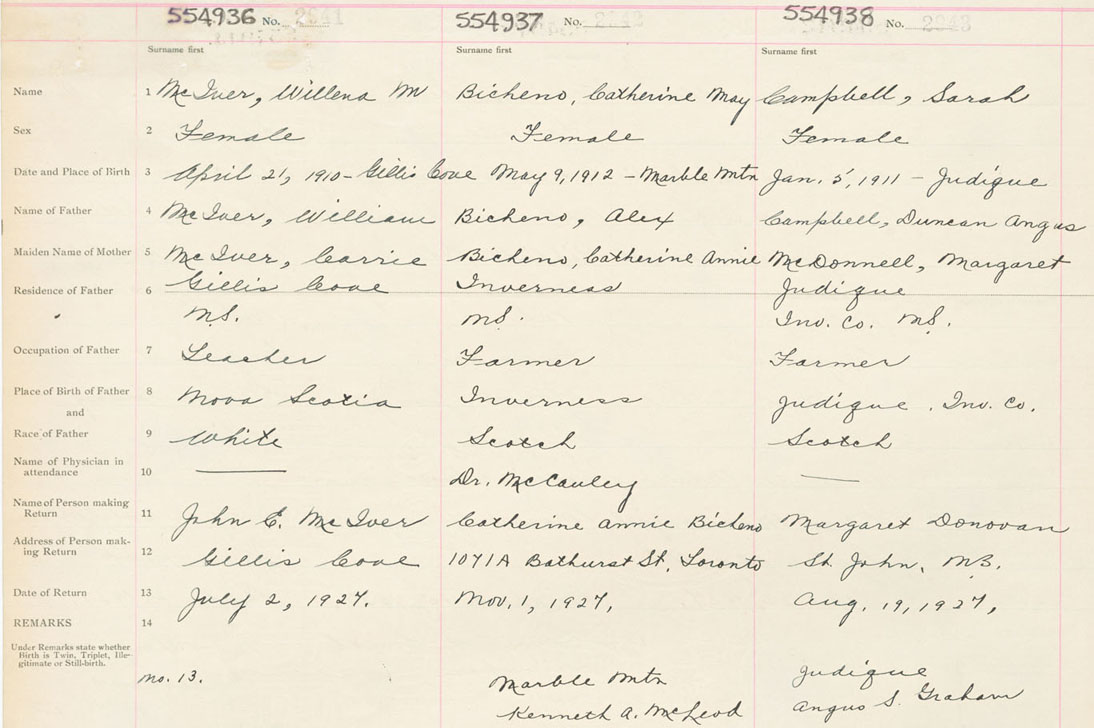 554936 No. 2941 554937 No. 2942 554938 No. 2943
Surname first Surname first Surname first
Name 1 McIver, Willena M Bicheno, Catherine May Campbell, Sarah
Sex 2 Female Female Female
Date and Place of Birth 3 April 21, 1910 - Gillis Cove May 9, 1912 - Marble Mtn Jan. 5, 1911 - Judique
Name of Father 4 McIver, William Bicheno, Alex Campbell, Duncan Angus
Maiden Name of Mother 5 McIver, Carrie Bicheno, Catherine Annie McDonnell, Margaret
Residence of Father 6 Gillis Cove Inverness Judique
N.S. N.S. Inv. Co. N.S.
Occupation of Father 7 Teacher Farmer Farmer
Place of Birth of Father 8 Nova Scotia Inverness Judique, Inv. Co.
and
Race of Father 9 White Scotch Scotch
Name of Physician in
attendance 10 Dr. McCauley
Name of Person making
Return 11 John E. McIver Catherine Annie Bicheno Margaret Donovan
Address of Person mak-
ing Return 12 Gillis Cove 1071A Bathurst St, Toronto St. John, N.B.
Date of Return 13 July 2, 1927. Nov. 1, 1927, Aug. 19, 1927,
REMARKS 14
Under Remarks state whether
Birth is Twin, Triplet, Ille-
gitimate or Still-birth.
No. 13. Marble Mtn Judique
Kenneth A. McLeod Angus S. Graham